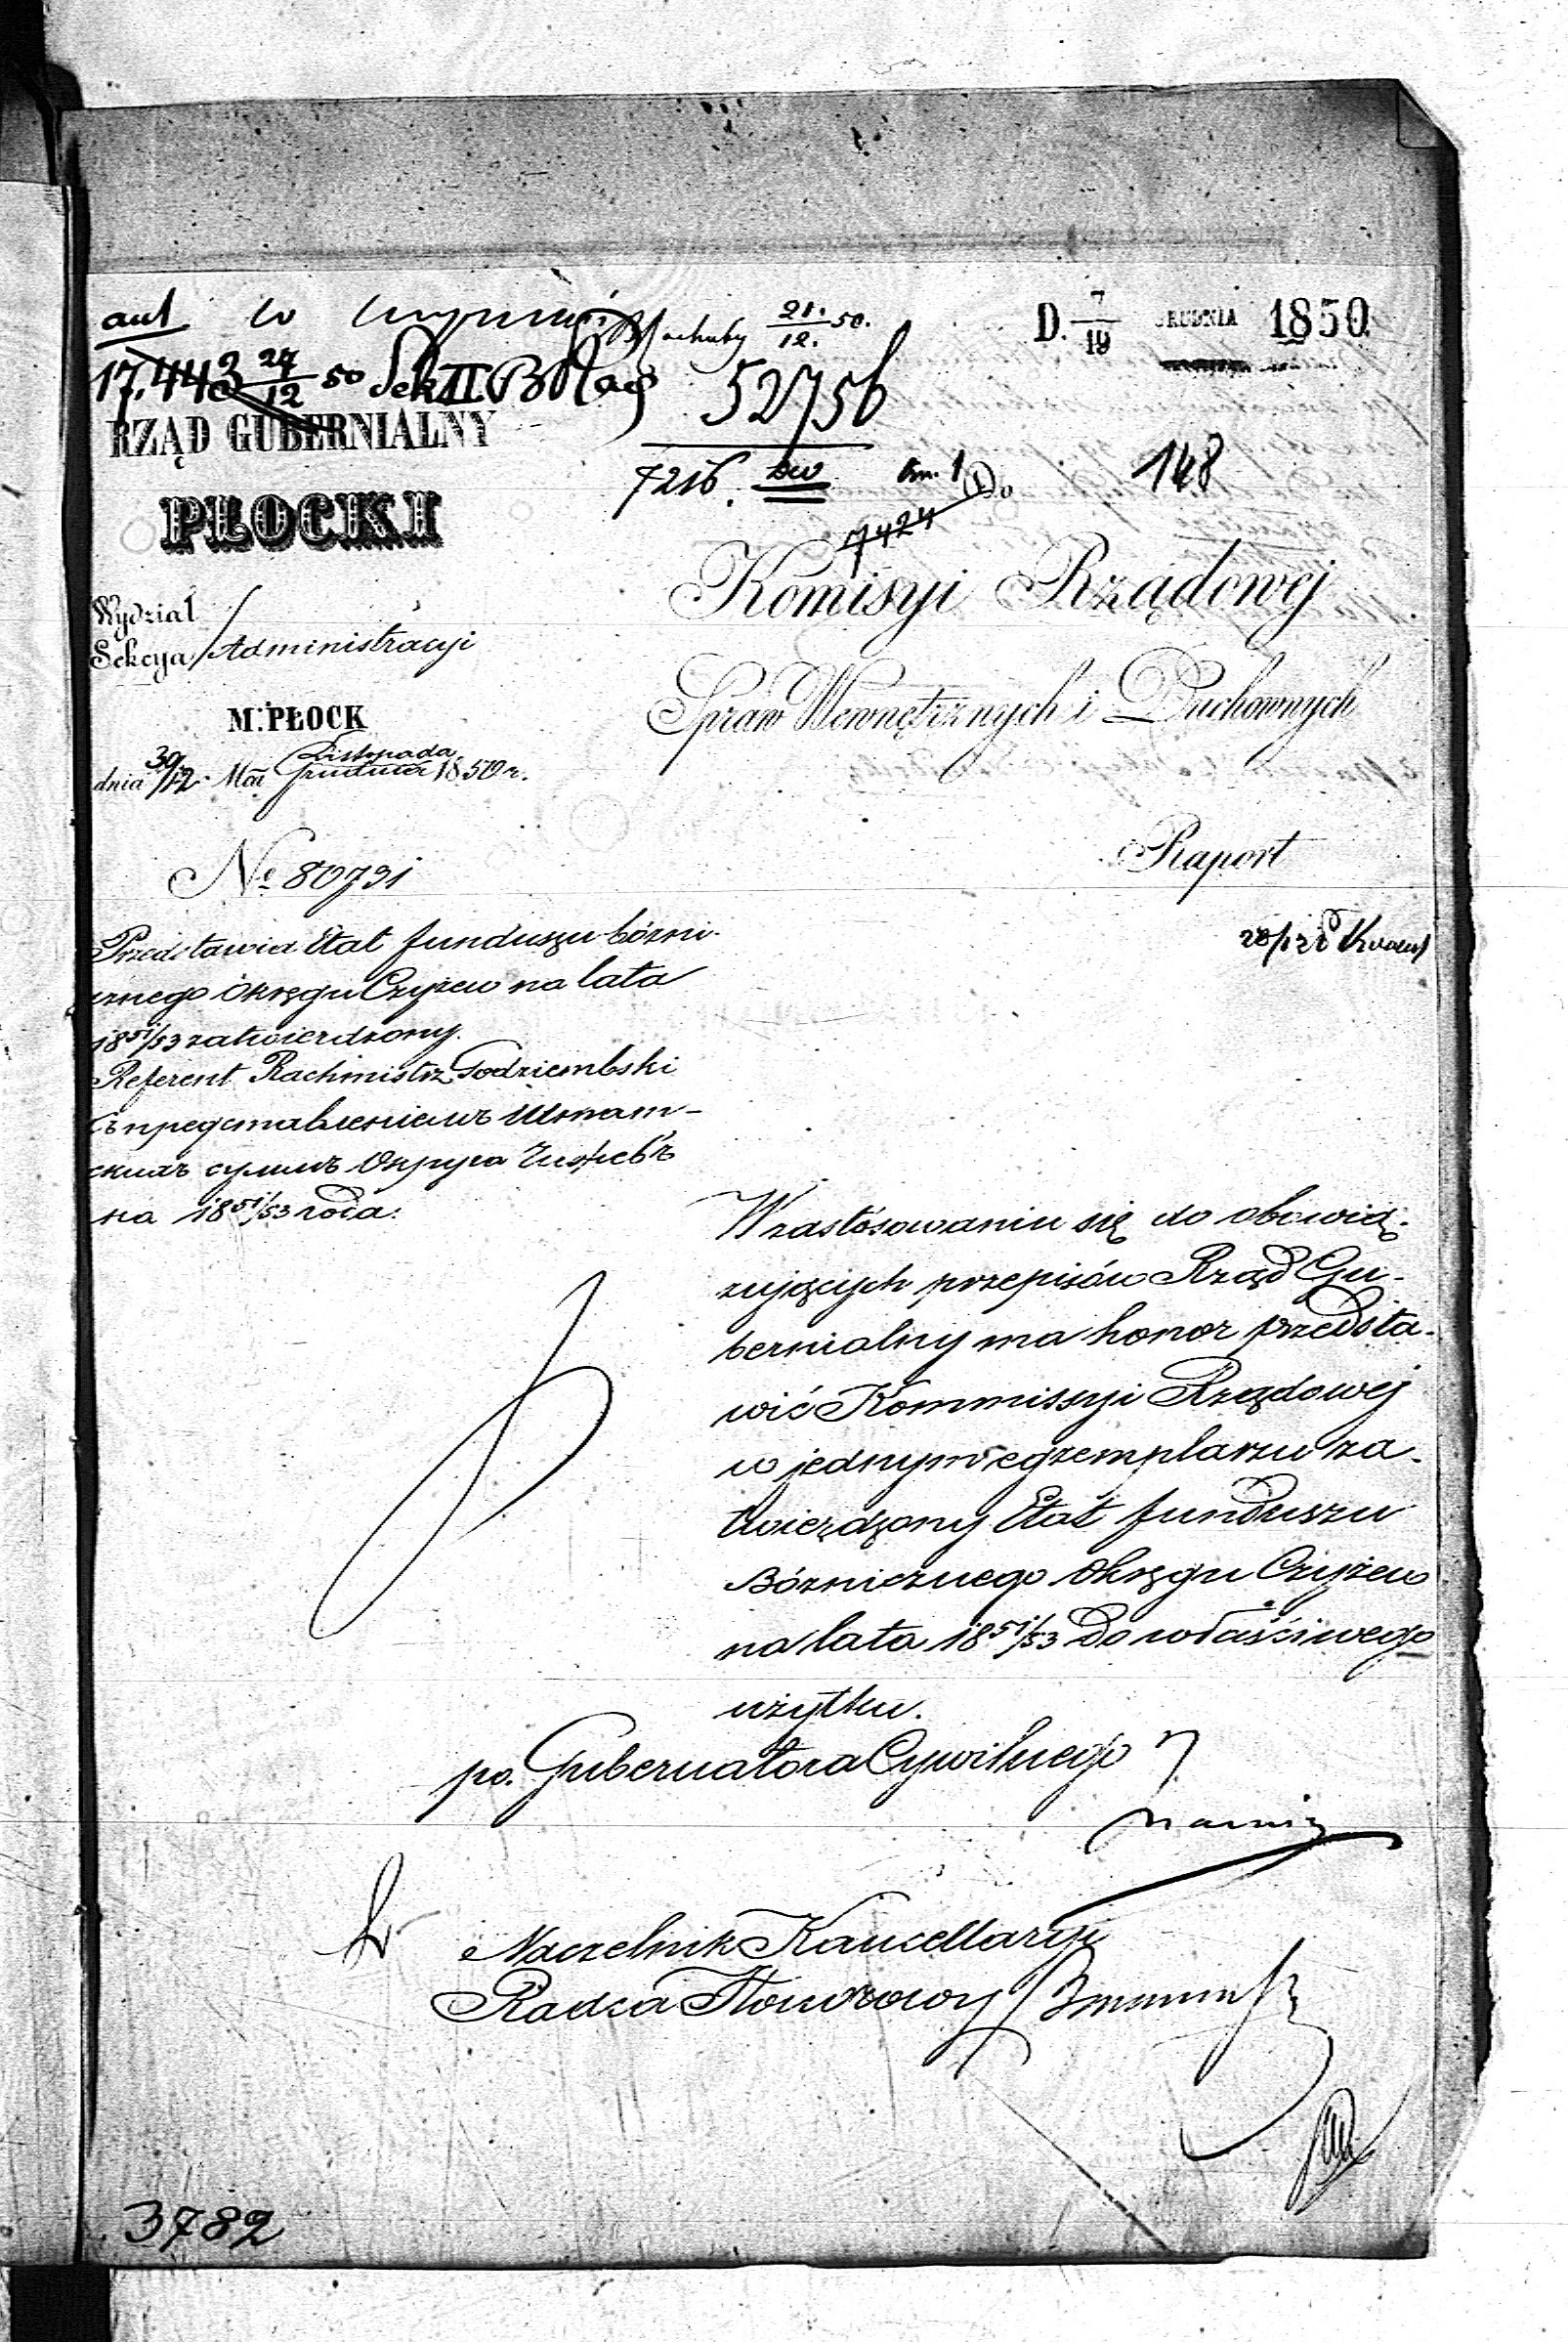 D. 7/19 GRUDNIA 1850
17.443 27/12 50 Sek II
21./12. 50.
52756
RZĄD GUBERNIALNY
7216.
148
Do
7424
PŁOCKI
Komisyi Rządowej
Wydział
Sekcya Administracyi
Spraw Wewnętrznych i Duchownych
M. PŁOCK
dnia 30/12 Mca Listopada/Grudnia 1850 r.
Raport
No 80791
Przedstawia Etat funduszu bózni-
cznego Okręgu Czyżew na lata
1851/53 zatwierdzony.
Referent Rachmistrz Godziembski
Округа Чижевъ
на 1851/53 года.
W zastósowaniu się do obowią-
zujących przepisów Rząd Gu-
bernialny ma honor przedsta-
wić Kommissyi Rządowej
w jednym egzemplarzu za-
twierdzony Etat funduszu
Bóznicznego Okręgu Czyżew
na lata 1851/53 do właściwego
użytku.
po. Gubernatora Cywilnego
Naczelnik Kancellaryi
Radca Honorowy
3782